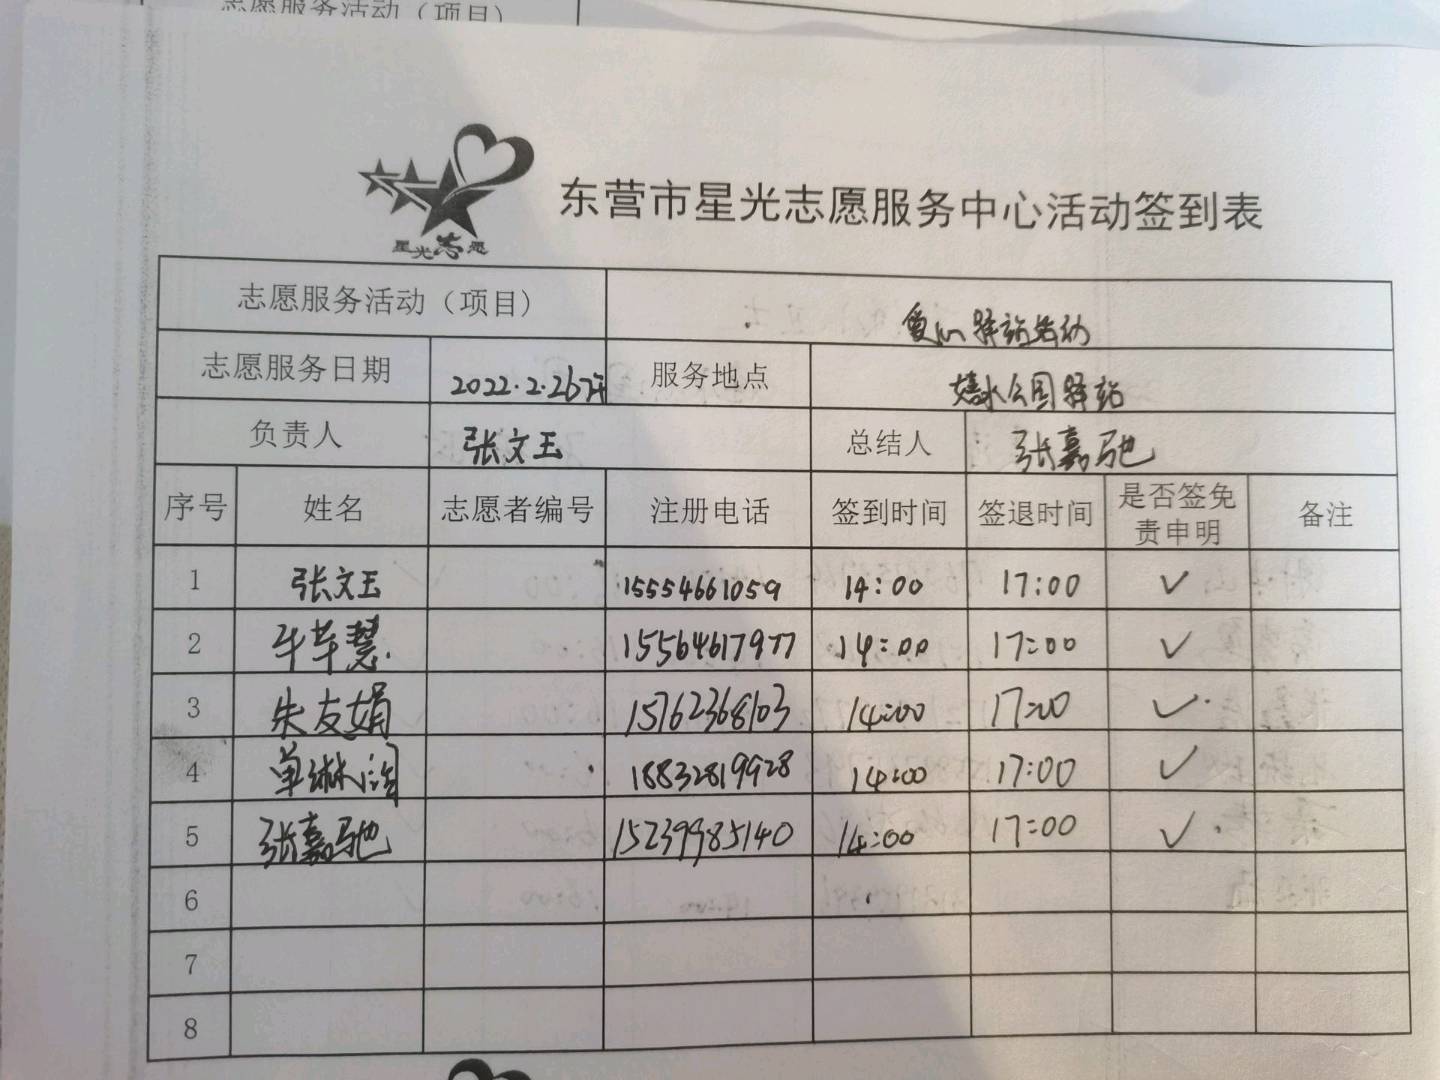 志愿服务活动（项目）
星光志愿
东营市星光志愿服务中心活动签到表
志愿服务活动（项目） 爱心驿站活动
志愿服务日期 2022.2.26下午 服务地点 公园驿站
负责人 张文玉 总结人 张嘉驰
序号 姓名 志愿者编号 注册电话 签到时间 签退时间 是否签免责申明 备注
1 张文玉 15554661059 14:00 17:00 ✓
2 牛苹慧 15564617977 14:00 17:00 ✓
3 朱友娟 15762368103 14:00 17:00 ✓
4 单琳 18832819928 14:00 17:00 ✓
5 张嘉驰 15239985140 14:00 17:00 ✓
6
7
8